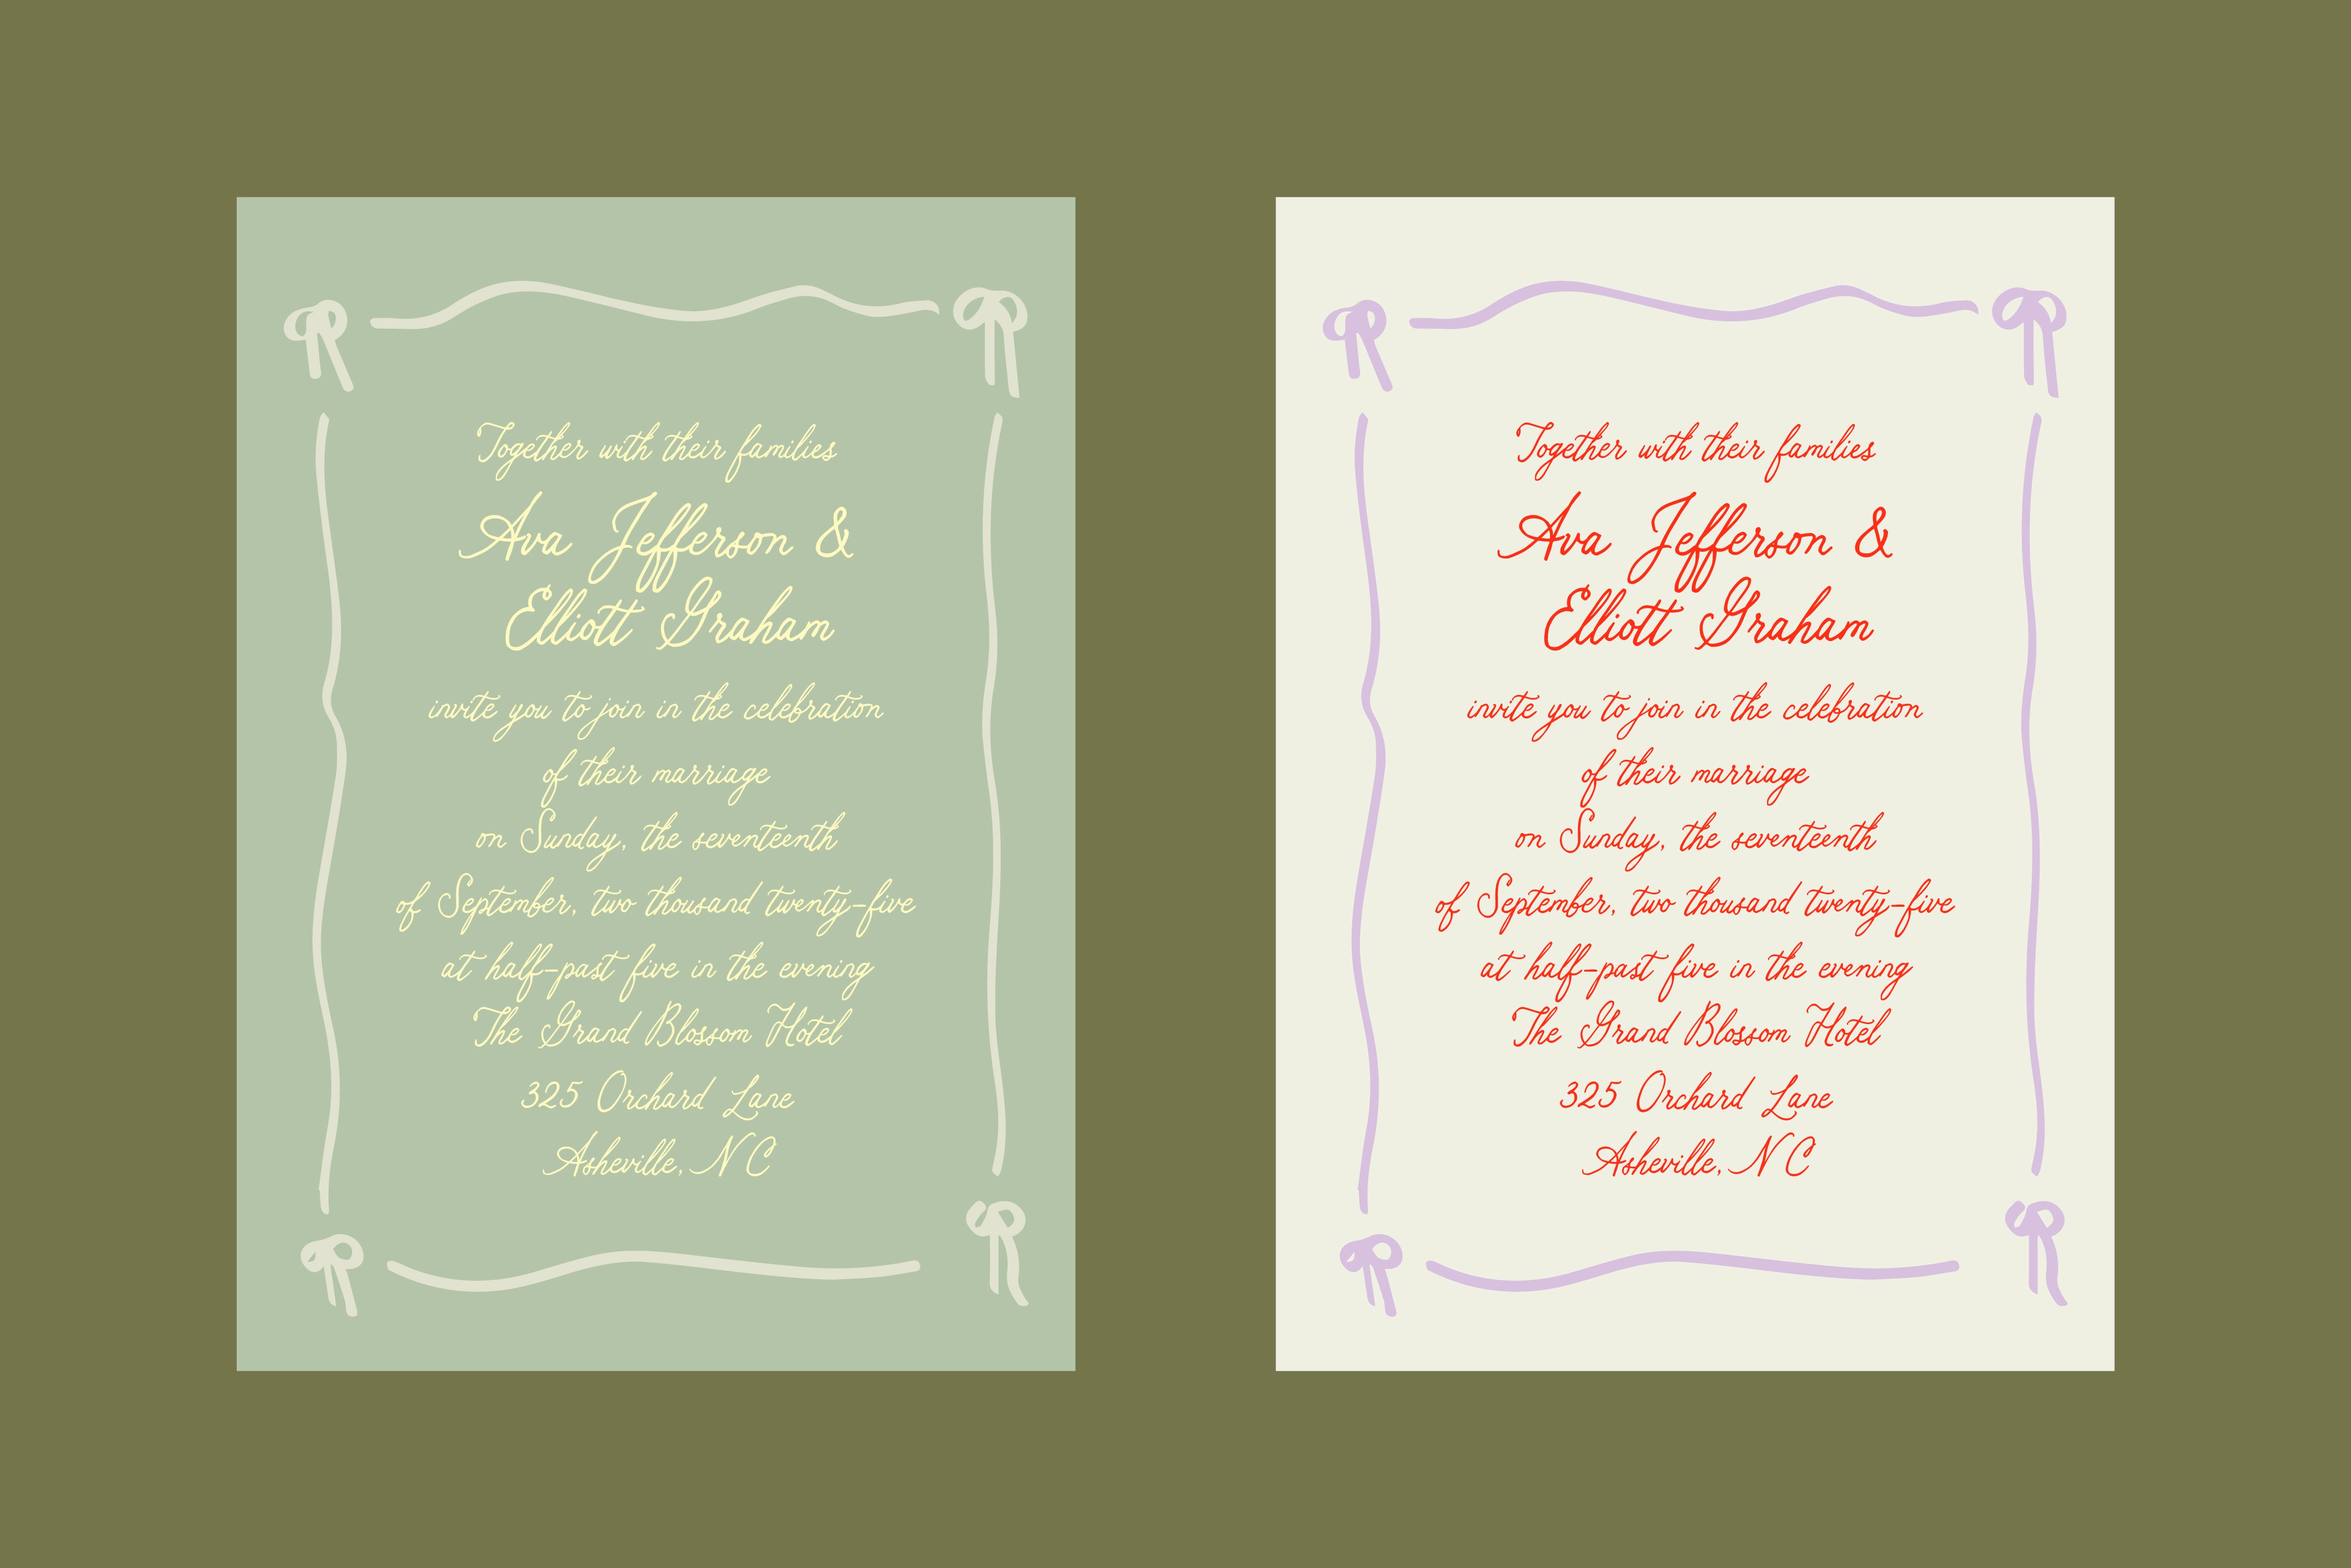 Together with their families
Ava Jefferson &
Elliott Graham
invite you to join in the celebration
of their marriage
on Sunday, the seventeenth
of September, two thousand twenty-five
at half-past five in the evening
The Grand Blossom Hotel
325 Orchard Lane
Asheville, NC
Together with their families
Ava Jefferson &
Elliott Graham
invite you to join in the celebration
of their marriage
on Sunday, the seventeenth
of September, two thousand twenty-five
at half-past five in the evening
The Grand Blossom Hotel
325 Orchard Lane
Asheville, NC